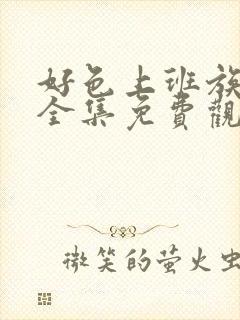 好色上班族
全集免費觀
微笑的萤火虫